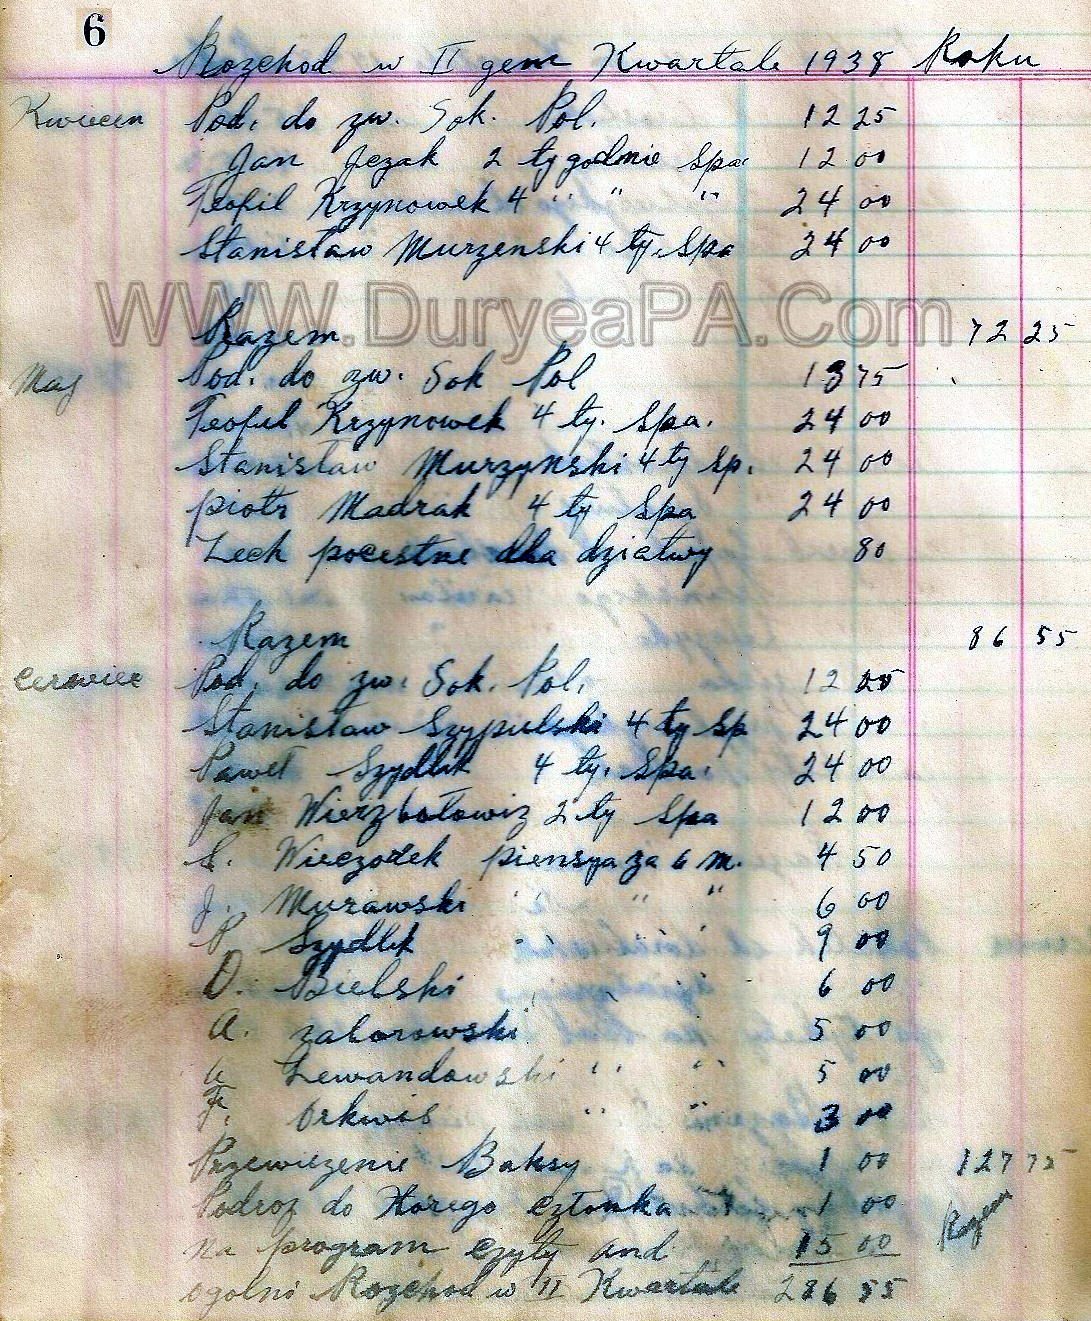 6
Rozchod w II gem Kwartale 1938 Roku
Kwiecen Pod. do zw. Sok. Pol. 12 25
Jan Jezak 2 tygodnie Spa. 12 00
Teofil Krzynowek 4 " " " 24 00
Stanisław Murzenski 4 ty. Spa 24 00
WWW.DuryeaPA.Com
Razem. 72 25
Maj Pod. do zw. Sok Pol 13 75
Teofil Krzynowek 4 ty. Spa. 24 00
Stanisław Murzynski 4 ty Sp. 24 00
Piotr Madrak 4 ty Spa 24 00
Zech pocestne dla dziatwy 80
Razem 86 55
Cerwiec Pod. do zw. Sok. Pol. 12 25
Stanisław Szypulski 4 ty Sp 24 00
Paweł Szydlik 4 ty. Spa. 24 00
Jan Wierzbołowiz 2 ty Spa 12 00
Wieczorek piensya za 6 m. 4 50
J. Murawski " " " 6 00
P Szydlik " " 9 00
D. Bielski " " 6 00
A. Zaborowski 5 00
Lewandowski " " 5 00
F. Orkwis " " 3 00
Przewiezenie Baksy 1 00 127 75
Podroz do Horego Członka 1 00 Razem
na program 15 00
ogolni Rozchod w II Kwartale 286 55